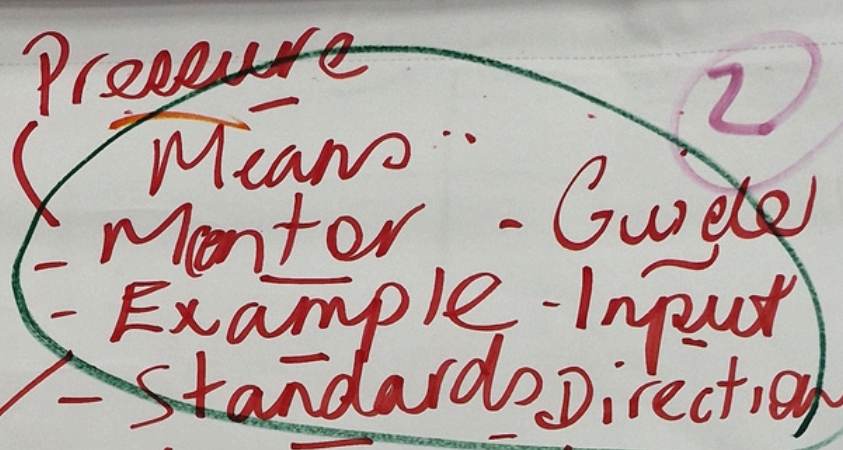 Pressure 2
Means
- Mentor - Guide
- Example - Input
- Standards Direction